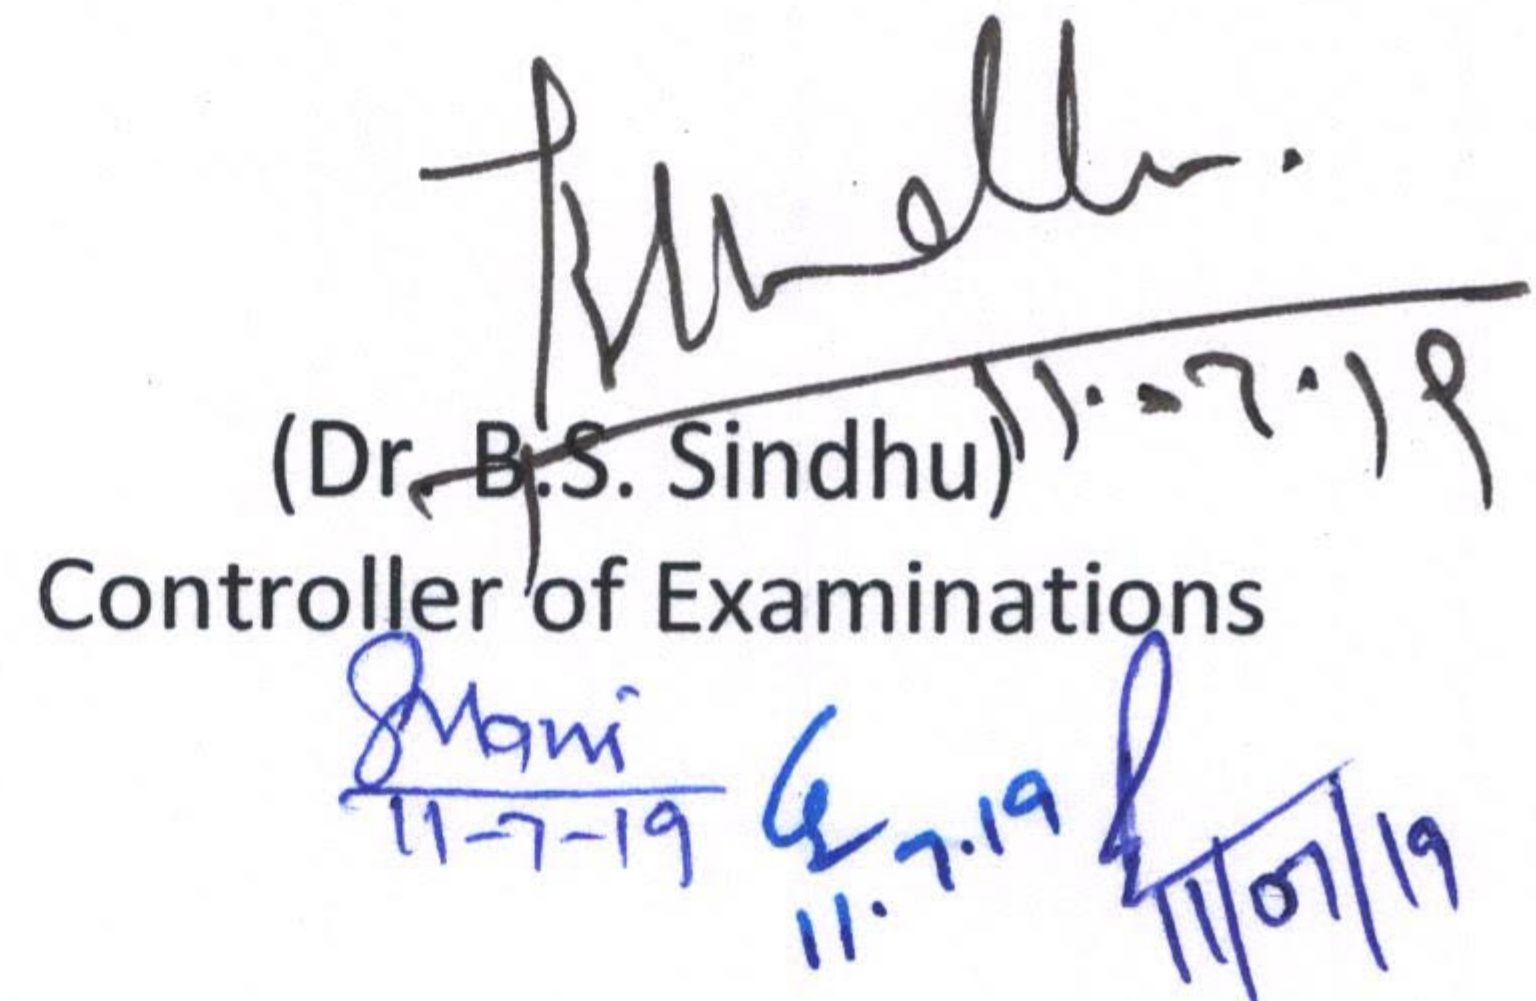 11.-7.19
(Dr. B.S. Sindhu)
Controller of Examinations
11-7-19
11.7.19
11/07/19